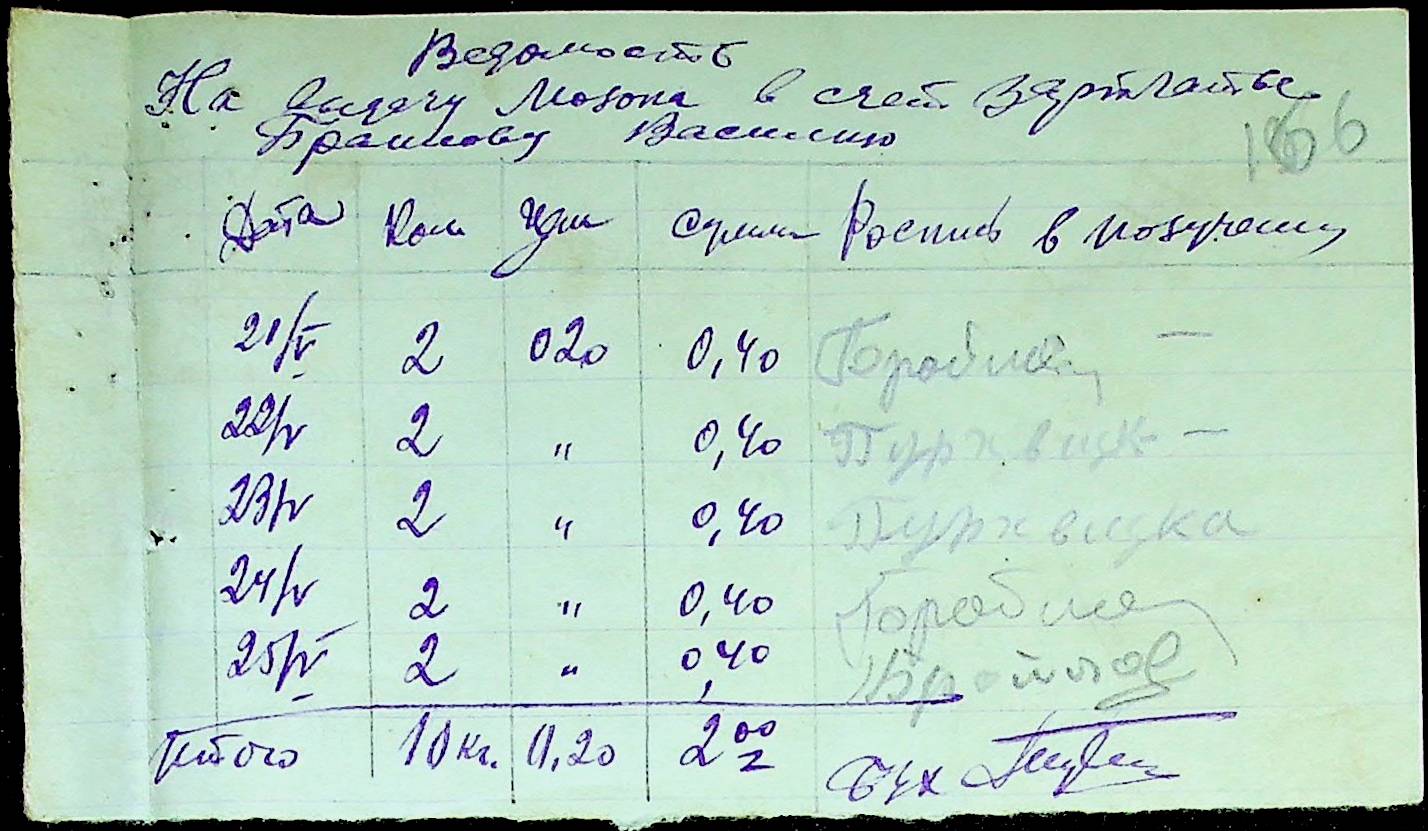 Ведомость
На выдачу молока в счет зарплаты
Браннову Василию
166
Дата Кол Цена сумма Роспись в получении
21/V 2 020 0,40
22/V 2 " 0,40 Пурхвицк
23/V 2 " 0,40 Пурхвицка
24/V 2 " 0,40
25/V 2 " 0,40
Итого 10 кг. 0,20 2 00
Бух